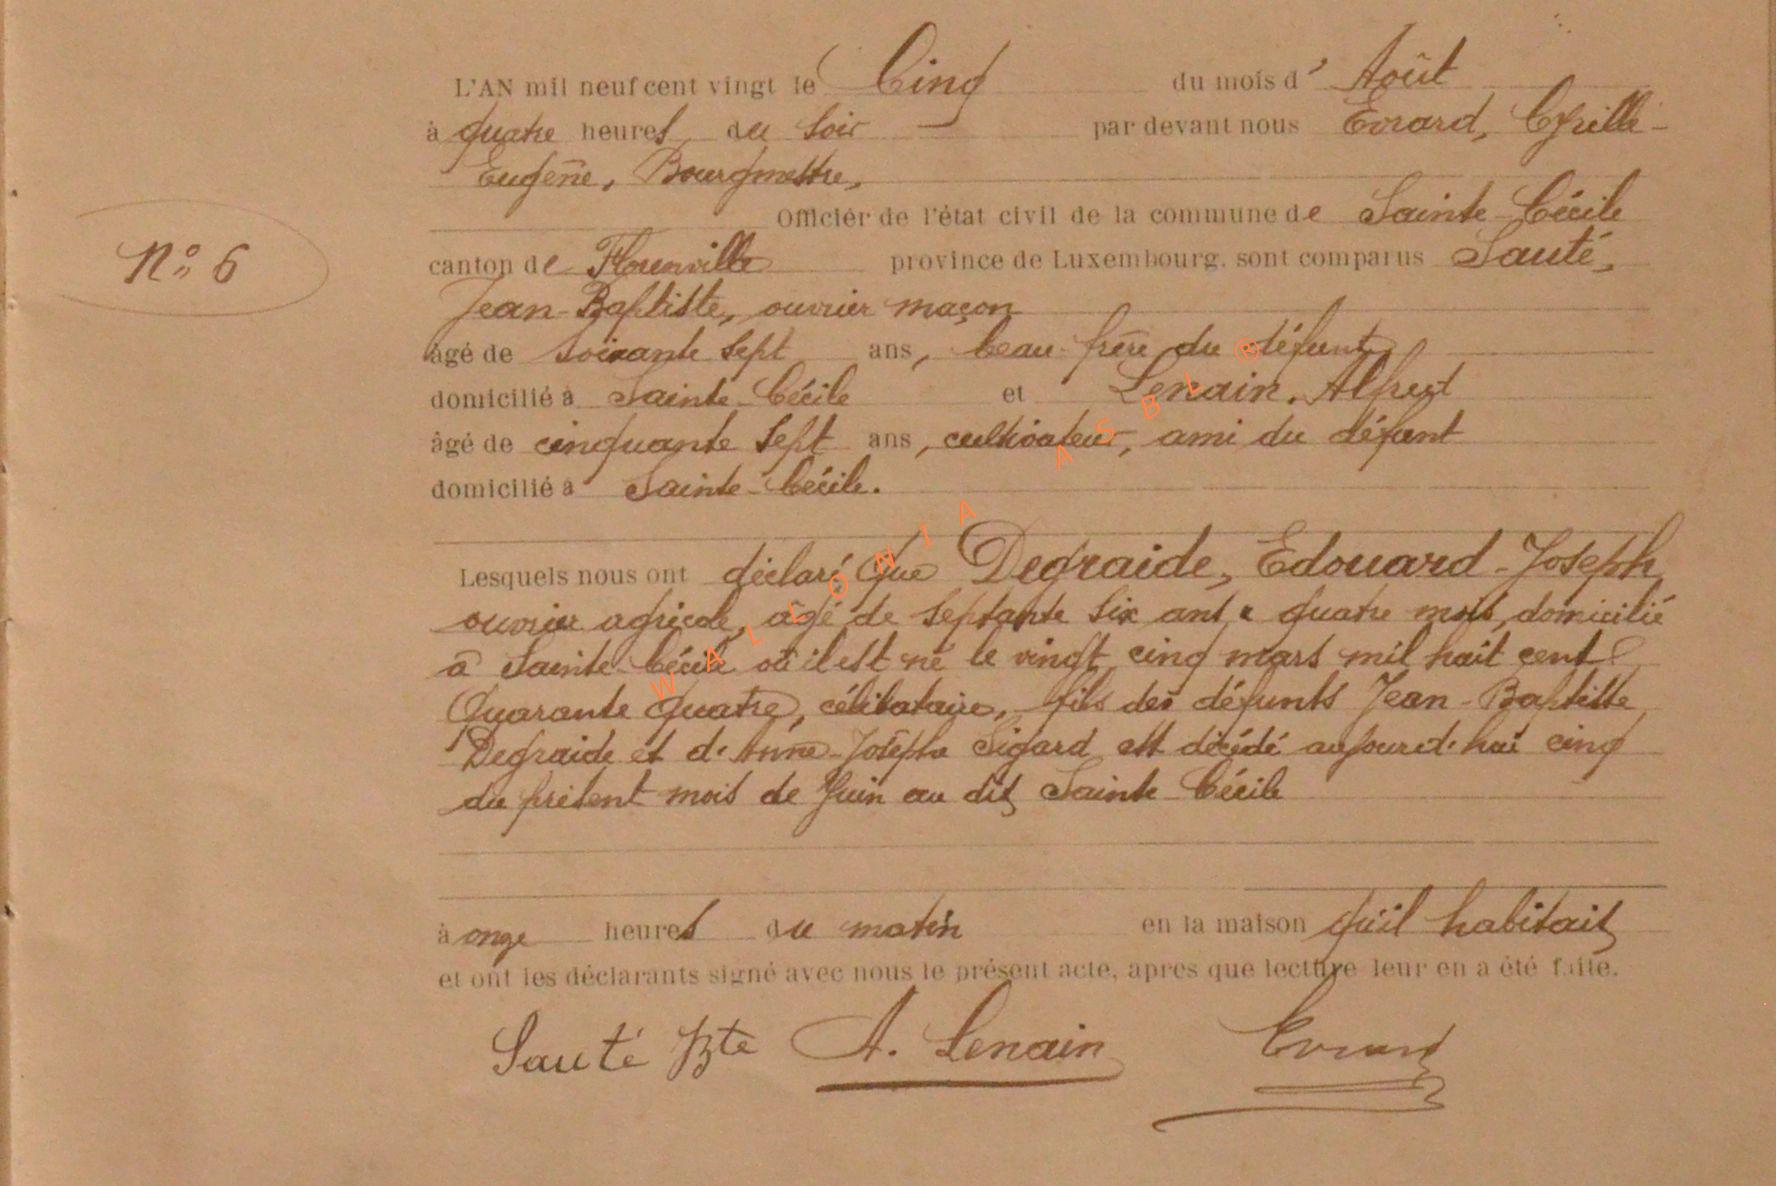 L'AN mil neuf cent vingt le Cinq du mois d' Août
à quatre heures du soir par devant nous Evrard, Cyrille
Eugène, Bourgmestre,
Officier de l'état civil de la commune de Sainte-Cécile
N° 6
canton de Florenville province de Luxembourg, sont comparus Sauté,
Jean-Baptiste, ouvrier maçon
âgé de soixante sept ans, beau-frère du défunt
domicilié à Sainte-Cécile et Lenain, Alfred
âgé de cinquante sept ans, cultivateur, ami du défunt
domicilié à Sainte-Cécile.
Lesquels nous ont déclaré que Degraide, Edouard-Joseph
ouvrier agricole, âgé de septante six ans quatre mois, domicilié
à Sainte-Cécile où il est né le vingt cinq mars mil huit cent
quarante quatre, célibataire, fils des défunts Jean-Baptiste
Degraide et d'Anne-Josèphe Sigard est décédé aujourd'hui cinq
du présent mois de Juin au dit Sainte-Cécile
à onze heures du matin en la maison qu'il habitait
et ont les déclarants signé avec nous le présent acte, apres que lecture leur en a été faite.
Sauté Bte A. Lenain Evrard
WALLONIA ASBL ®